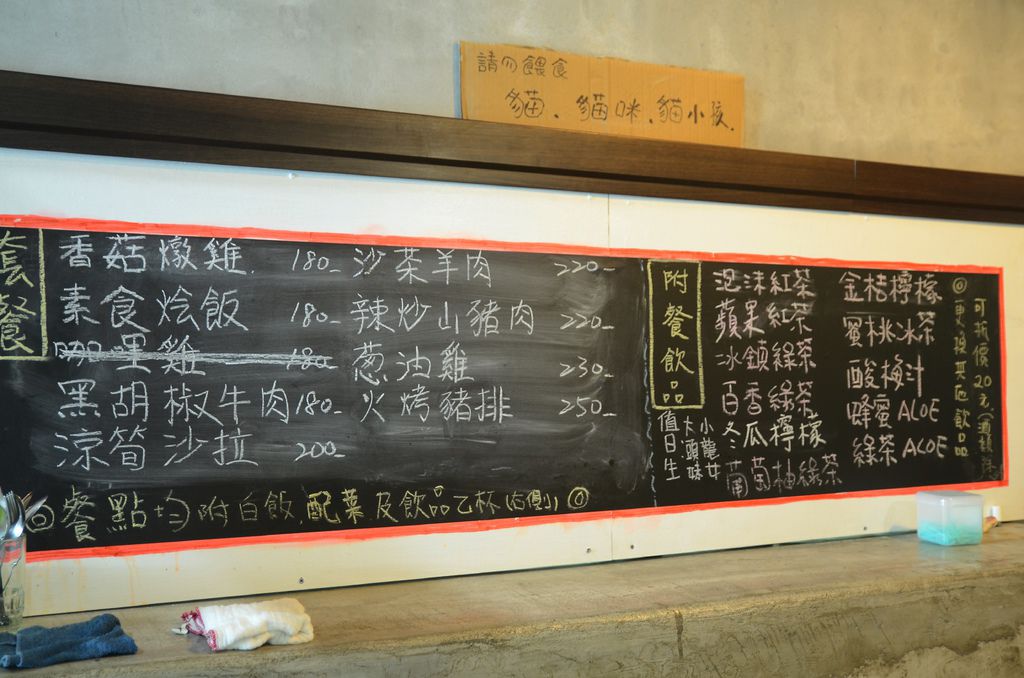 請勿餵食
貓、貓咪、貓小孩.
套餐
香菇燉雞. 180-
素食烩飯 180-
咖哩雞 180-
黑胡椒牛肉 180-
涼筍沙拉 200-
沙茶羊肉 220-
辣炒山豬肉 220-
葱油雞 230-
火烤豬排 250-
餐點均附白飯,配菜及飲品乙杯(右側)◎
附餐飲品
值日生
大頭妹
小龍女
泡沫紅茶
蘋果紅茶
冰鎮綠茶
百香綠茶
冬瓜檸檬
葡萄柚綠茶
金桔檸檬
蜜桃冰茶
酸梅汁
蜂蜜 ALOE
綠茶 ALOE
◎更換其他飲品
可折價20元